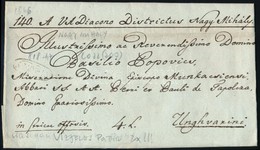 140. A V.A.Diacono Districtus Nagy Mihály
NAGY MIHÁLY
Illustrissimo ac Reverendissimo Domino
Basilio Popovics
Miseratione Divina Episcopo Munkacsiensi,
Abbati SS. A.A. Petri et Pauli de Tapolcza,
Domino Gratiosissimo.
in seriis officiosis 4. h. Unghvarini